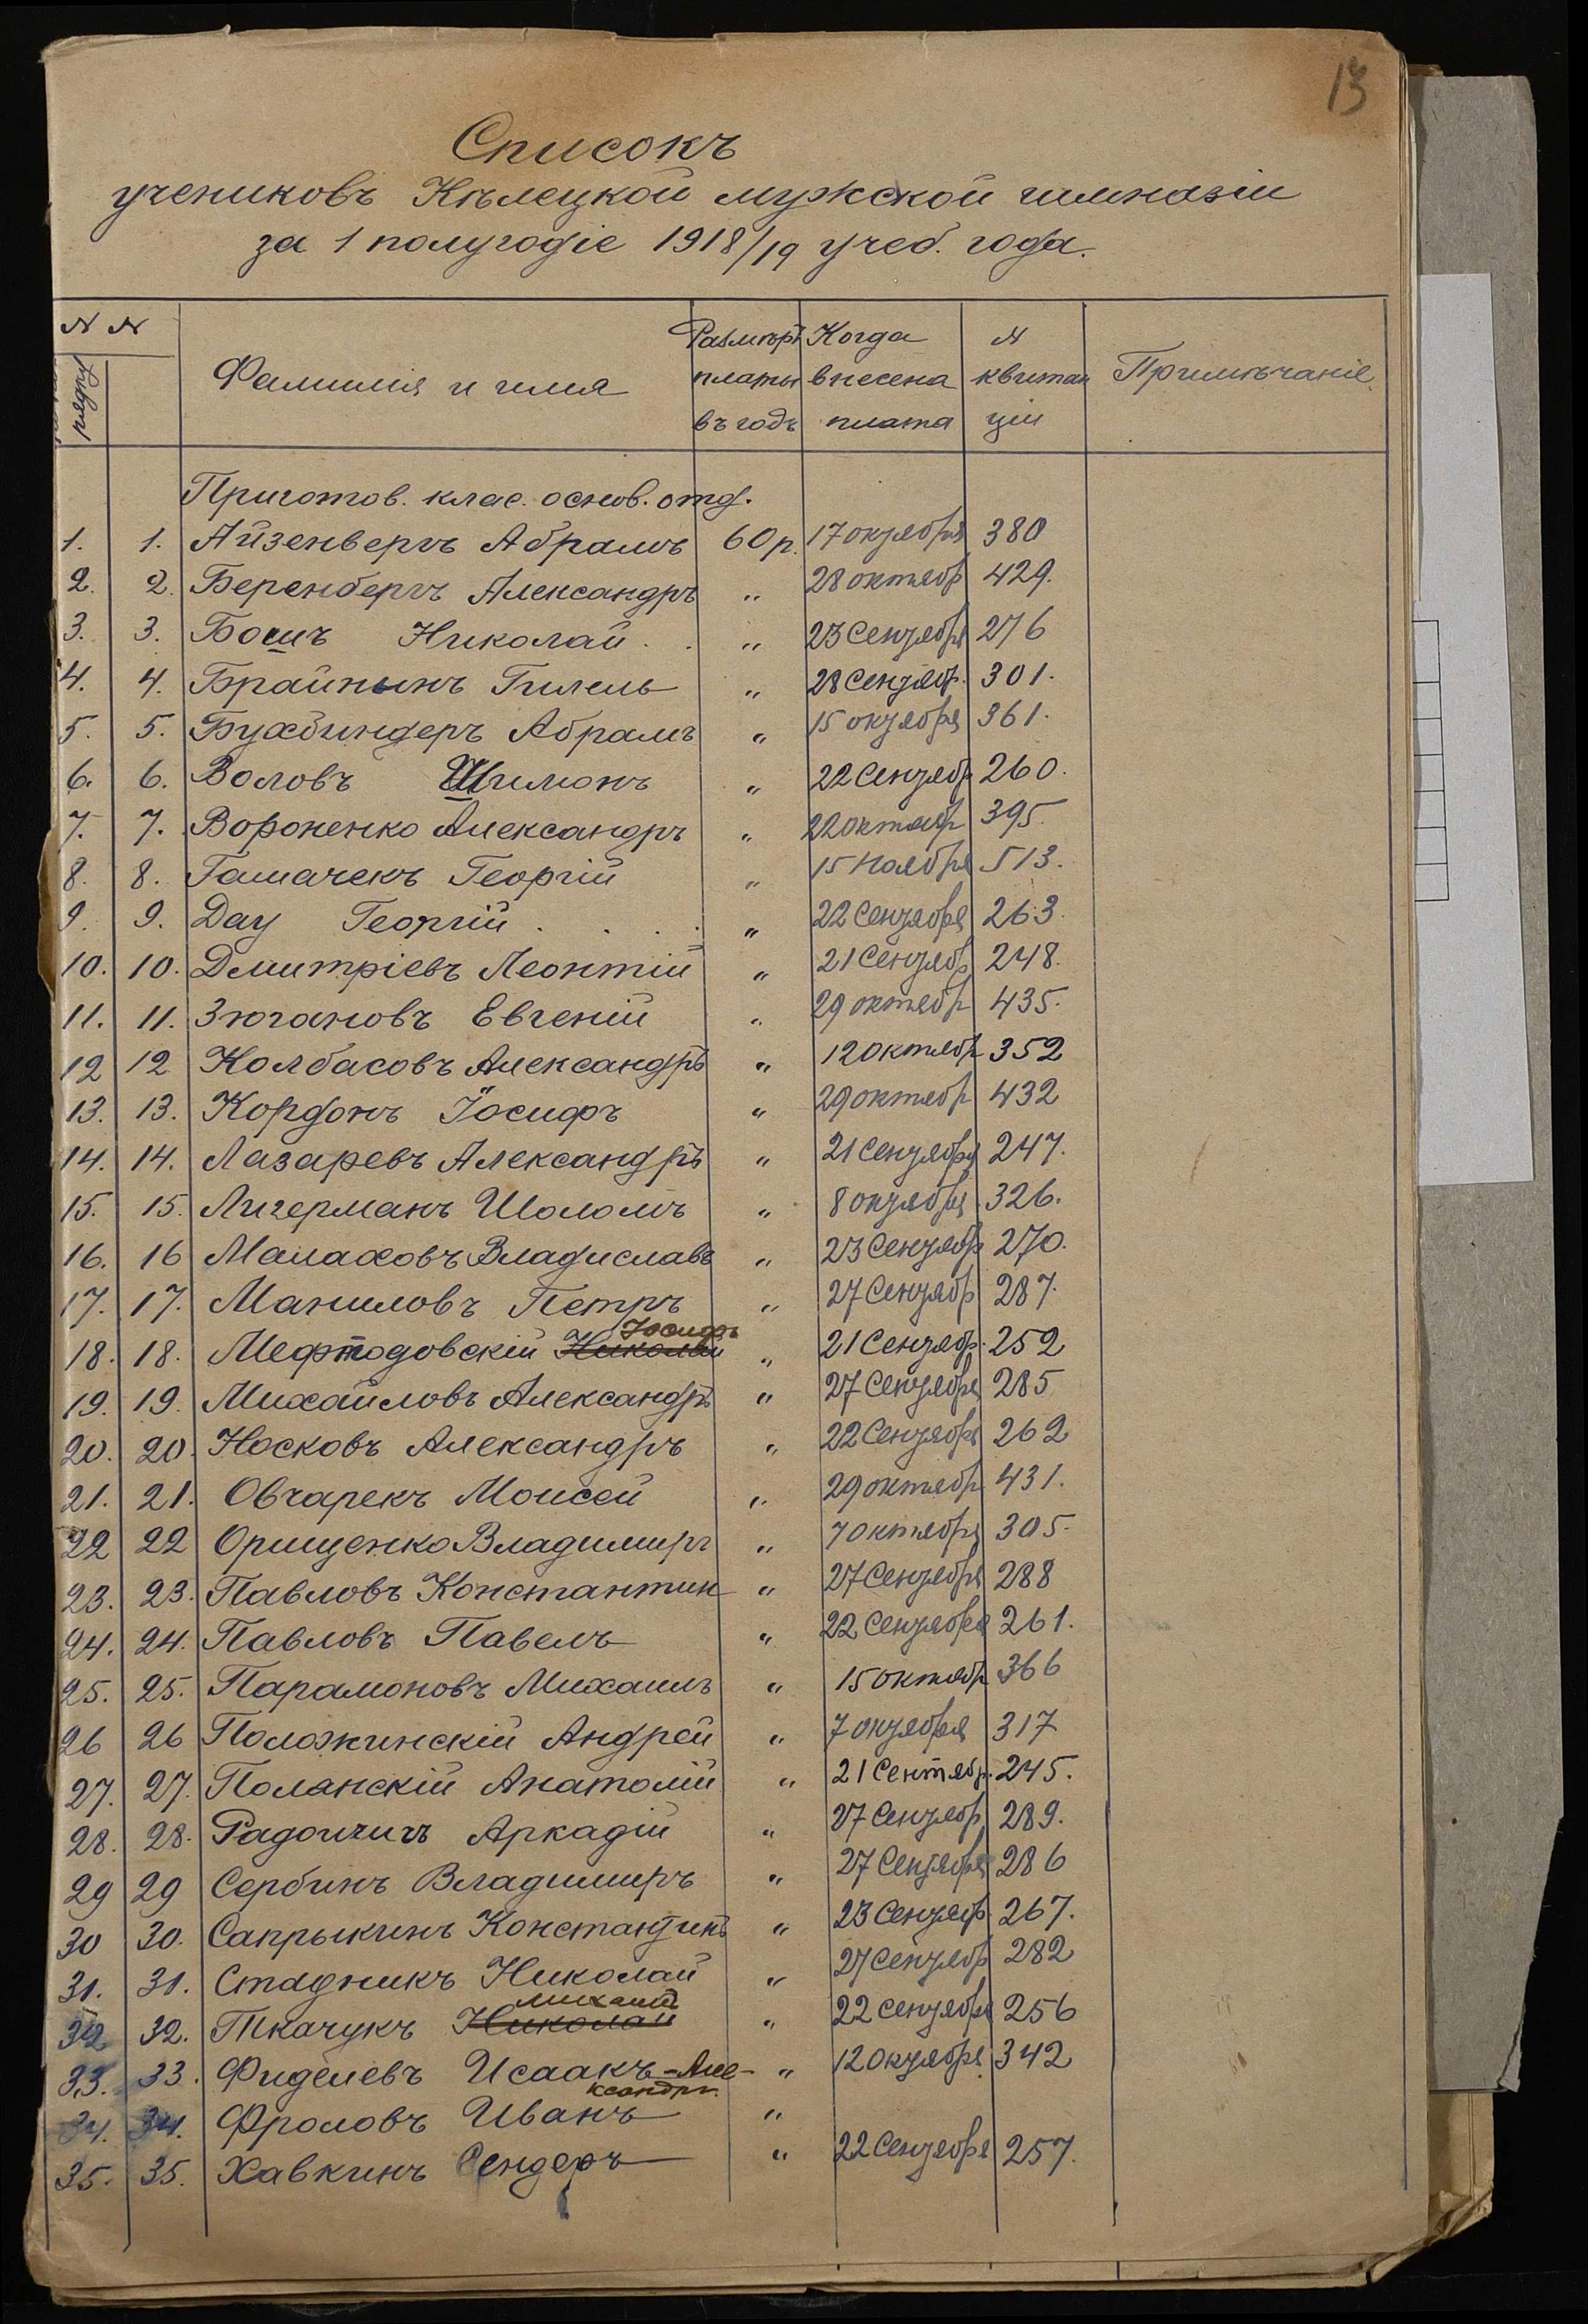 13
Списокъ
учениковъ Кѣлецкой мужской гимназіи
за 1 полугодіе 1918/19 учеб. года.
№ № Фамилія и имя Размѣръ платы въ годъ Когда внесена плата № квитанціи Примѣчаніе
Приготов. клас. основ. отд.
1. 1. Айзенбергъ Абрамъ 60 р. 17 октября 380
2. 2. Беренбергъ Александръ " 28 октябр 429.
3. 3. Бошъ Николай . . " 23 Сентября 276
4. 4. Брайнынъ Гилель " 28 Сентябр. 301.
5. 5. Бухбиндеръ Абрамъ " 15 октября 361.
6. 6. Воловъ Шимонъ " 22 Сентябр 260.
7. 7. Вороненко Александръ " 22 октябр 395.
8. 8. Гамачекъ Георгій " 15 Ноября 513.
9. 9. Дау Георгій . . . . " 22 Сентября 263.
10. 10. Дмитріевъ Леонтій " 21 Сентябр 248.
11. 11. Зюгановъ Евгеній " 29 октябр 435.
12 12 Колбасовъ Александръ " 12 октябр 352
13. 13. Кордонъ Іосифъ " 29 октябр 432
14. 14. Лазаревъ Александръ " 21 Сентября 247.
15. 15. Лигерманъ Шоломъ " 8 октября 326.
16. 16 Малаховъ Владиславъ " 23 Сентябр 270.
17. 17. Маниловъ Петръ " 27 Сентябр 287.
Іосифъ
18. 18. Мефтодовскій Николай " 21 Сентябр. 252
19. 19. Михайловъ Александръ " 27 Сентября 285
20. 20. Носковъ Александръ " 22 Сентября 262
21. 21. Овчарекъ Моисей " 29 октябр 431.
22 22 Орищенко Владимиръ " 7 октября 305.
23. 23. Павловъ Константин " 27 Сентября 288
24. 24. Павловъ Павелъ " 22 Сентября 261.
25. 25. Парамоновъ Михаилъ " 15 октябр 366
26 26 Положинскій Андрей " 7 октября 317
27. 27. Полянскій Анатолій " 21 Сентябр. 245.
28. 28. Радоичичъ Аркадій " 27 Сентябр. 289.
29 29 Сербинъ Владимиръ " 27 Сентября 286
30 30. Сапрыкинъ Константинъ " 23 Сентябр 267.
31. 31. Стадникъ Николай " 27 Сентябр 282
Михаилъ
32 32. Ткачукъ Николай " 22 сентября 256
33. 33. Фиделевъ Исаакъ-Але- " 12 октября 342
ксандръ.
34. 34. Фроловъ Иванъ "
35. 35. Хавкинъ Сендеръ " 22 Сентября 257.